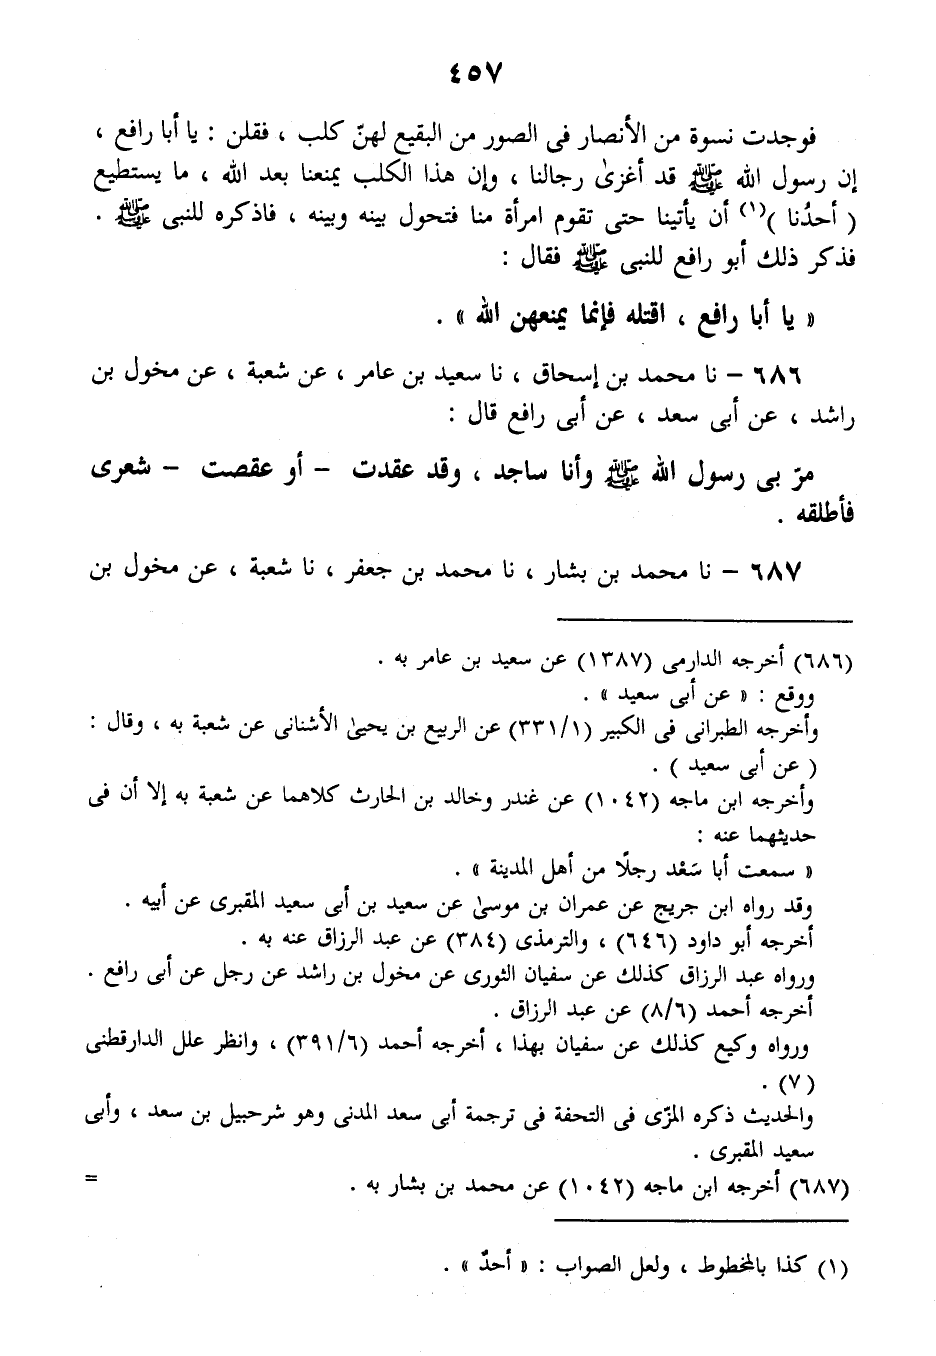 ٤٥٧
فوجدت نسوة من الأنصار فى الصور من البقيع لهنّ كلب ، فقلن : يا أبا رافع ،
إن رسول الله ﷺ قد أغزىٰ رجالنا ، وإن هذا الكلب يمنعنا بعد الله ، ما يستطيع
( أحدُنا )(١) أن يأتينا حتى تقوم امرأة منا فتحول بينه وبينه ، فاذكره للنبى ﷺ .
فذكر ذلك أبو رافع للنبى ﷺ فقال :
« يا أبا رافع ، اقتله فإنما يمنعهن الله » .
٦٨٦ – نا محمد بن إسحاق ، نا سعيد بن عامر ، عن شعبة ، عن مخول بن
راشد ، عن أبى سعد ، عن أبى رافع قال :
مرّ بى رسول الله ﷺ وأنا ساجد ، وقد عقدت – أو عقصت – شعرى
فأطلقه .
٦٨٧ – نا محمد بن بشار ، نا محمد بن جعفر ، نا شعبة ، عن مخول بن
(٦٨٦) أخرجه الدارمى (١٣٨٧) عن سعيد بن عامر به .
ووقع : « عن أبى سعيد » .
وأخرجه الطبرانى فى الكبير (٣٣١/١) عن الربيع بن يحيىٰ الأشنانى عن شعبة به ، وقال :
( عن أبى سعيد ) .
وأخرجه ابن ماجه (١٠٤٢) عن غندر وخالد بن الحارث كلاهما عن شعبة به إلا أن فى
حديثهما عنه :
« سمعت أبا سَعْد رجلًا من أهل المدينة » .
وقد رواه ابن جريج عن عمران بن موسىٰ عن سعيد بن أبى سعيد المقبرى عن أبيه .
أخرجه أبو داود (٦٤٦) ، والترمذى (٣٨٤) عن عبد الرزاق عنه به .
ورواه عبد الرزاق كذلك عن سفيان الثورى عن مخول بن راشد عن رجل عن أبى رافع .
أخرجه أحمد (٨/٦) عن عبد الرزاق .
ورواه وكيع كذلك عن سفيان بهذا ، أخرجه أحمد (٣٩١/٦) ، وانظر علل الدارقطنى
(٧) .
والحديث ذكره المزّى فى التحفة فى ترجمة أبى سعد المدنى وهو شرحبيل بن سعد ، وأبى
سعيد المقبرى .
(٦٨٧) أخرجه ابن ماجه (١٠٤٢) عن محمد بن بشار به . =
(١) كذا بالمخطوط ، ولعل الصواب : « أحدٌ » .